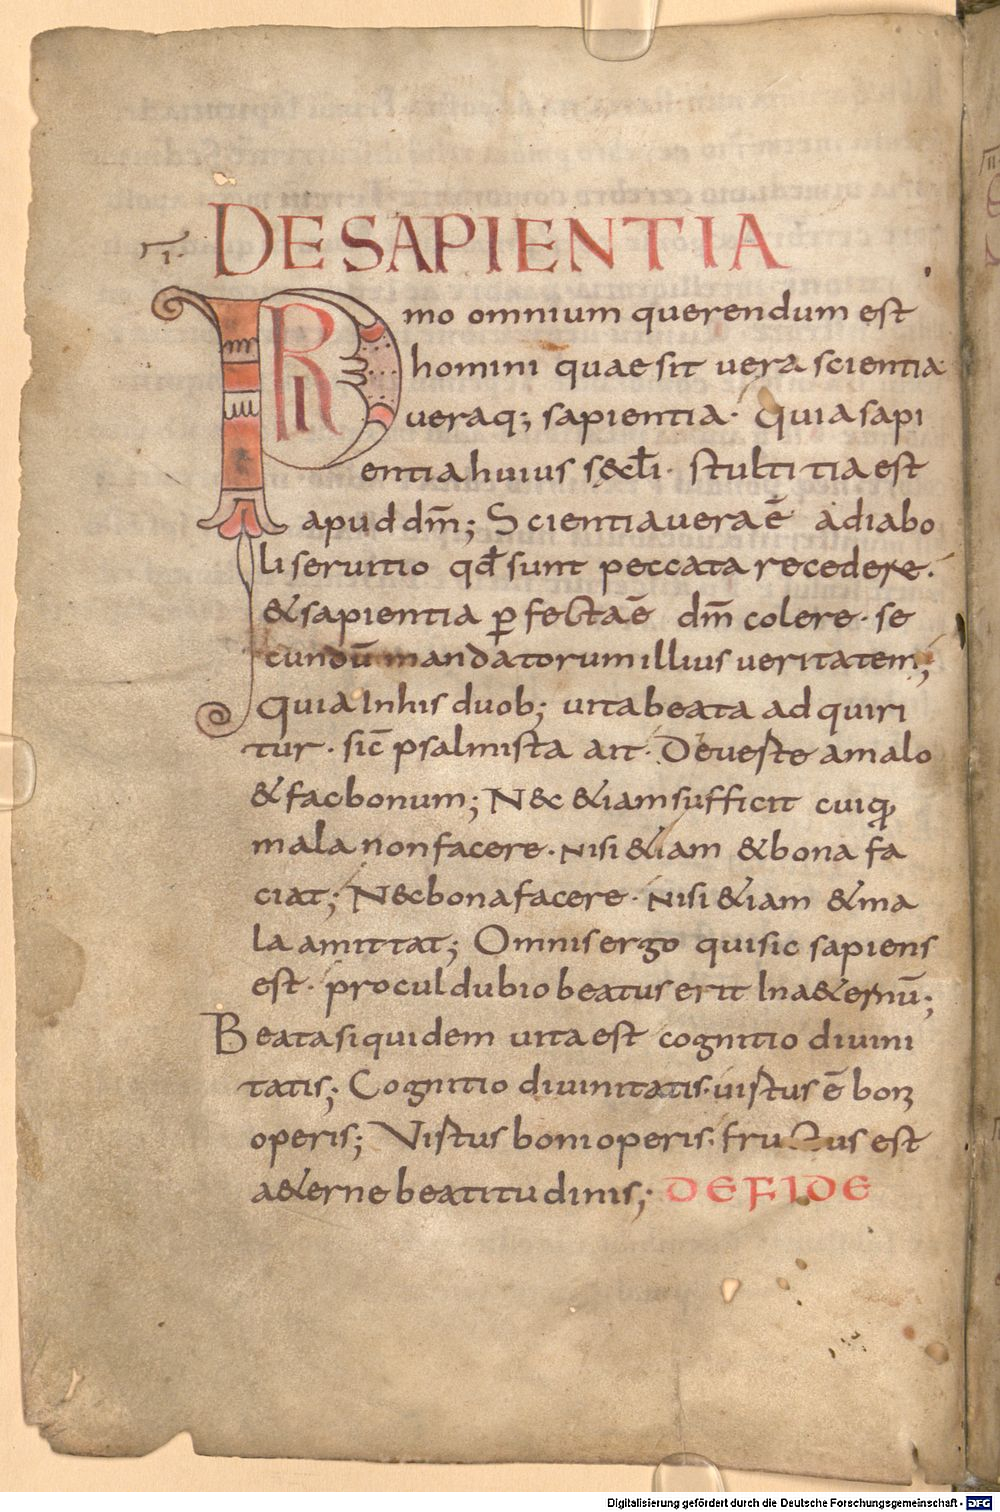 ·I·
DE SAPIENTIA
PRImo omnium querendum est
homini quae sit uera scientia
ueraq; sapientia· Quia sapi
entia huius s&cl̄i· stultitia est
apud dm̄; Scientia uera ē a diabo
li seruitio qđ sunt peccata recedere·
& sapientia ꝑfecta ē dm̄ colere· se
cundū mandatorum illius ueritatem;
Quia In his duob; uita beata adquiri
tur· sic̄ psalmista ait· Deuerte a malo
& fac bonum; N&c &iam sufficit cuiq̨
mala non facere· Nisi &iam & bona fa
ciat; N&c bona facere· Nisi &iam & ma
la amittat; Omnis ergo qui sic sapiens
est· procul dubio beatus erit In a&ernū;
Beata siquidem uita est cognitio diuini
tatis; Cognitio diuinitatis· uirtus ē boni
operis; Virtus boni operis· fructus est
a&erne beatitudinis; DE FIDE
Digitalisierung gefördert durch die Deutsche Forschungsgemeinschaft - DFG